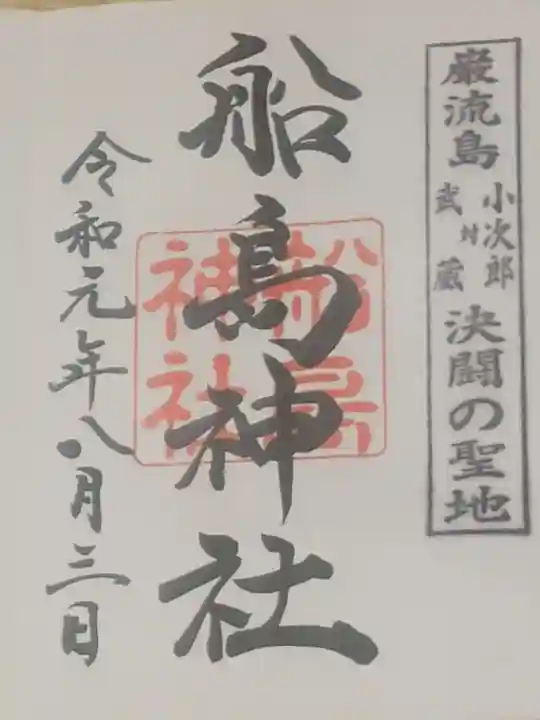 巌流島 小次郎 対 武蔵 決闘の聖地
船島神社
船島神社
令和元年八月三日